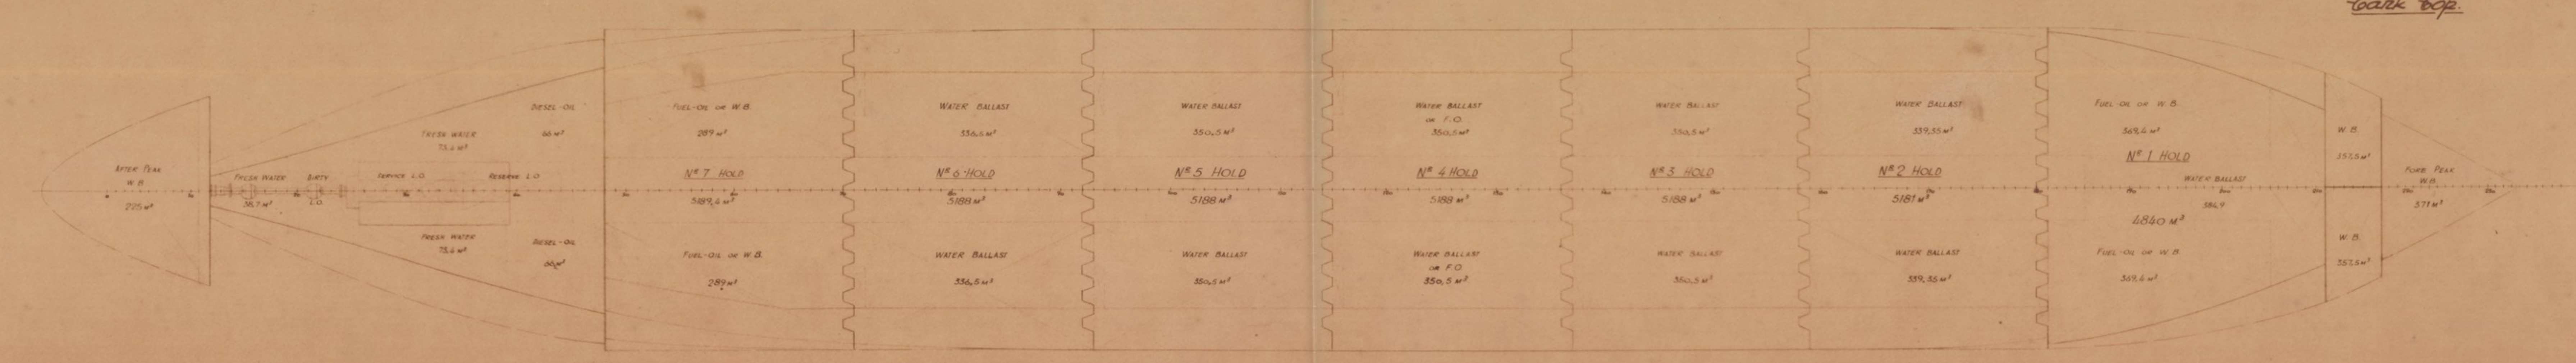 tank top.
AFTER PEAK
W.B.
225 M³
FRESH WATER
58,7 M³
DIRTY
L.O.
FRESH WATER
73,4 M³
SERVICE L.O.
RESERVE L.O.
FRESH WATER
73,4 M³
DIESEL-OIL
66 M³
DIESEL-OIL
66 M³
FUEL-OIL OR W.B.
289 M³
Nº 7 HOLD
5189,4 M³
FUEL-OIL OR W.B.
289 M³
WATER BALLAST
336,5 M³
Nº 6 HOLD
5188 M³
WATER BALLAST
336,5 M³
WATER BALLAST
350,5 M³
Nº 5 HOLD
5188 M³
WATER BALLAST
350,5 M³
WATER BALLAST
OR F.O.
350,5 M³
Nº 4 HOLD
5188 M³
WATER BALLAST
OR F.O
350,5 M³
WATER BALLAST
350,5 M³
Nº 3 HOLD
5188 M³
WATER BALLAST
350,5 M³
WATER BALLAST
339,35 M³
Nº 2 HOLD
5181 M³
WATER BALLAST
339,35 M³
FUEL-OIL OR W.B.
369,4 M³
Nº 1 HOLD
WATER BALLAST
384,9
4840 M³
FUEL-OIL OR W.B.
369,4 M³
W.B.
357,5 M³
W.B.
357,5 M³
FORE PEAK
W.B.
571 M³